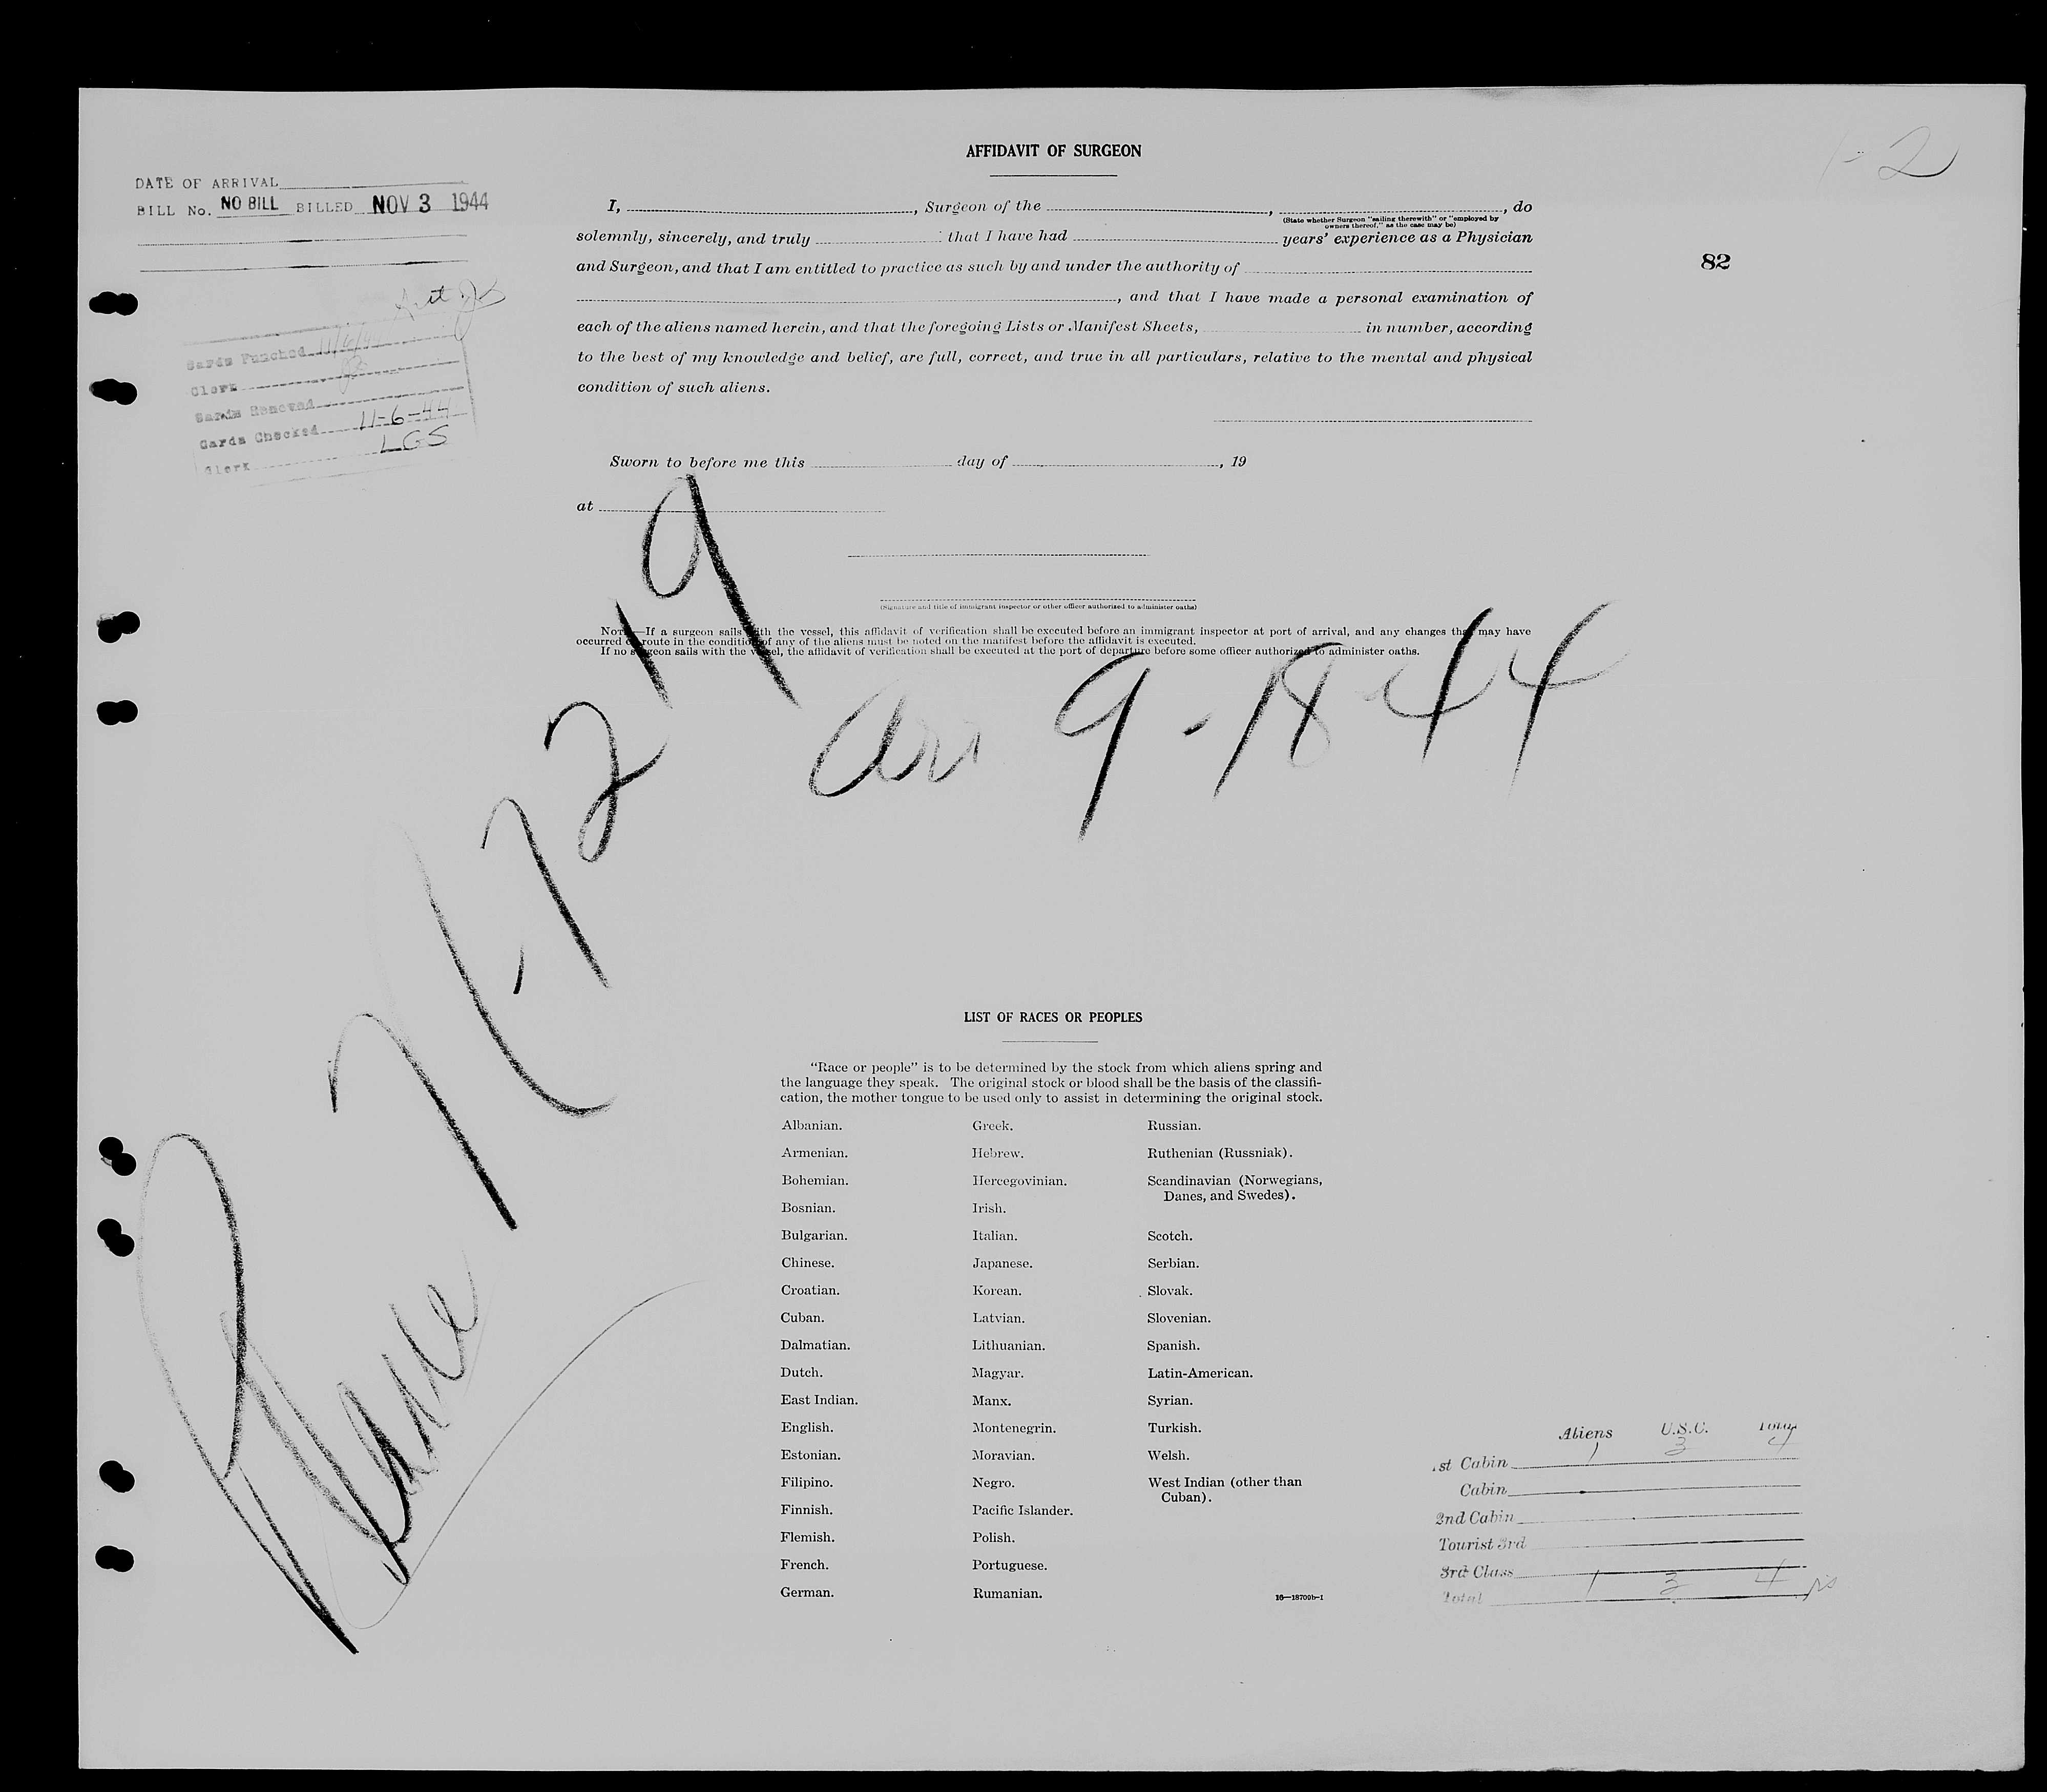 1-2
AFFIDAVIT OF SURGEON
DATE OF ARRIVAL
BILL No. NO BILL BILLED NOV 3 1944
I, , Surgeon of the , , do
(State whether Surgeon "sailing therewith" or "employed by
owners thereof," as the case may be)
solemnly, sincerely, and truly that I have had years' experience as a Physician
and Surgeon, and that I am entitled to practice as such by and under the authority of
, and that I have made a personal examination of
each of the aliens named herein, and that the foregoing Lists or Manifest Sheets, in number, according
to the best of my knowledge and belief, are full, correct, and true in all particulars, relative to the mental and physical
condition of such aliens.
82
Cards Punched 11/6/44
Clerk
Cards Removed
Cards Checked 11-6-44
Clerk LGS
Sworn to before me this day of , 19
at
(Signature and title of immigrant inspector or other officer authorized to administer oaths)
NOTE.—If a surgeon sails with the vessel, this affidavit of verification shall be executed before an immigrant inspector at port of arrival, and any changes that may have
occurred en route in the condition of any of the aliens must be noted on the manifest before the affidavit is executed.
If no surgeon sails with the vessel, the affidavit of verification shall be executed at the port of departure before some officer authorized to administer oaths.
Plane 
arr 9-18-44
LIST OF RACES OR PEOPLES
"Race or people" is to be determined by the stock from which aliens spring and
the language they speak. The original stock or blood shall be the basis of the classifi-
cation, the mother tongue to be used only to assist in determining the original stock.
Albanian. Greek. Russian.
Armenian. Hebrew. Ruthenian (Russniak).
Bohemian. Hercegovinian. Scandinavian (Norwegians,
Danes, and Swedes).
Bosnian. Irish.
Bulgarian. Italian. Scotch.
Chinese. Japanese. Serbian.
Croatian. Korean. Slovak.
Cuban. Latvian. Slovenian.
Dalmatian. Lithuanian. Spanish.
Dutch. Magyar. Latin-American.
East Indian. Manx. Syrian.
English. Montenegrin. Turkish.
Estonian. Moravian. Welsh.
Filipino. Negro. West Indian (other than
Cuban).
Finnish. Pacific Islander.
Flemish. Polish.
French. Portuguese.
German. Rumanian.
16—18709b-1
Aliens U.S.C. Total
1st Cabin 1 3 4
Cabin
2nd Cabin
Tourist 3rd
3rd Class
Total 1 3 4